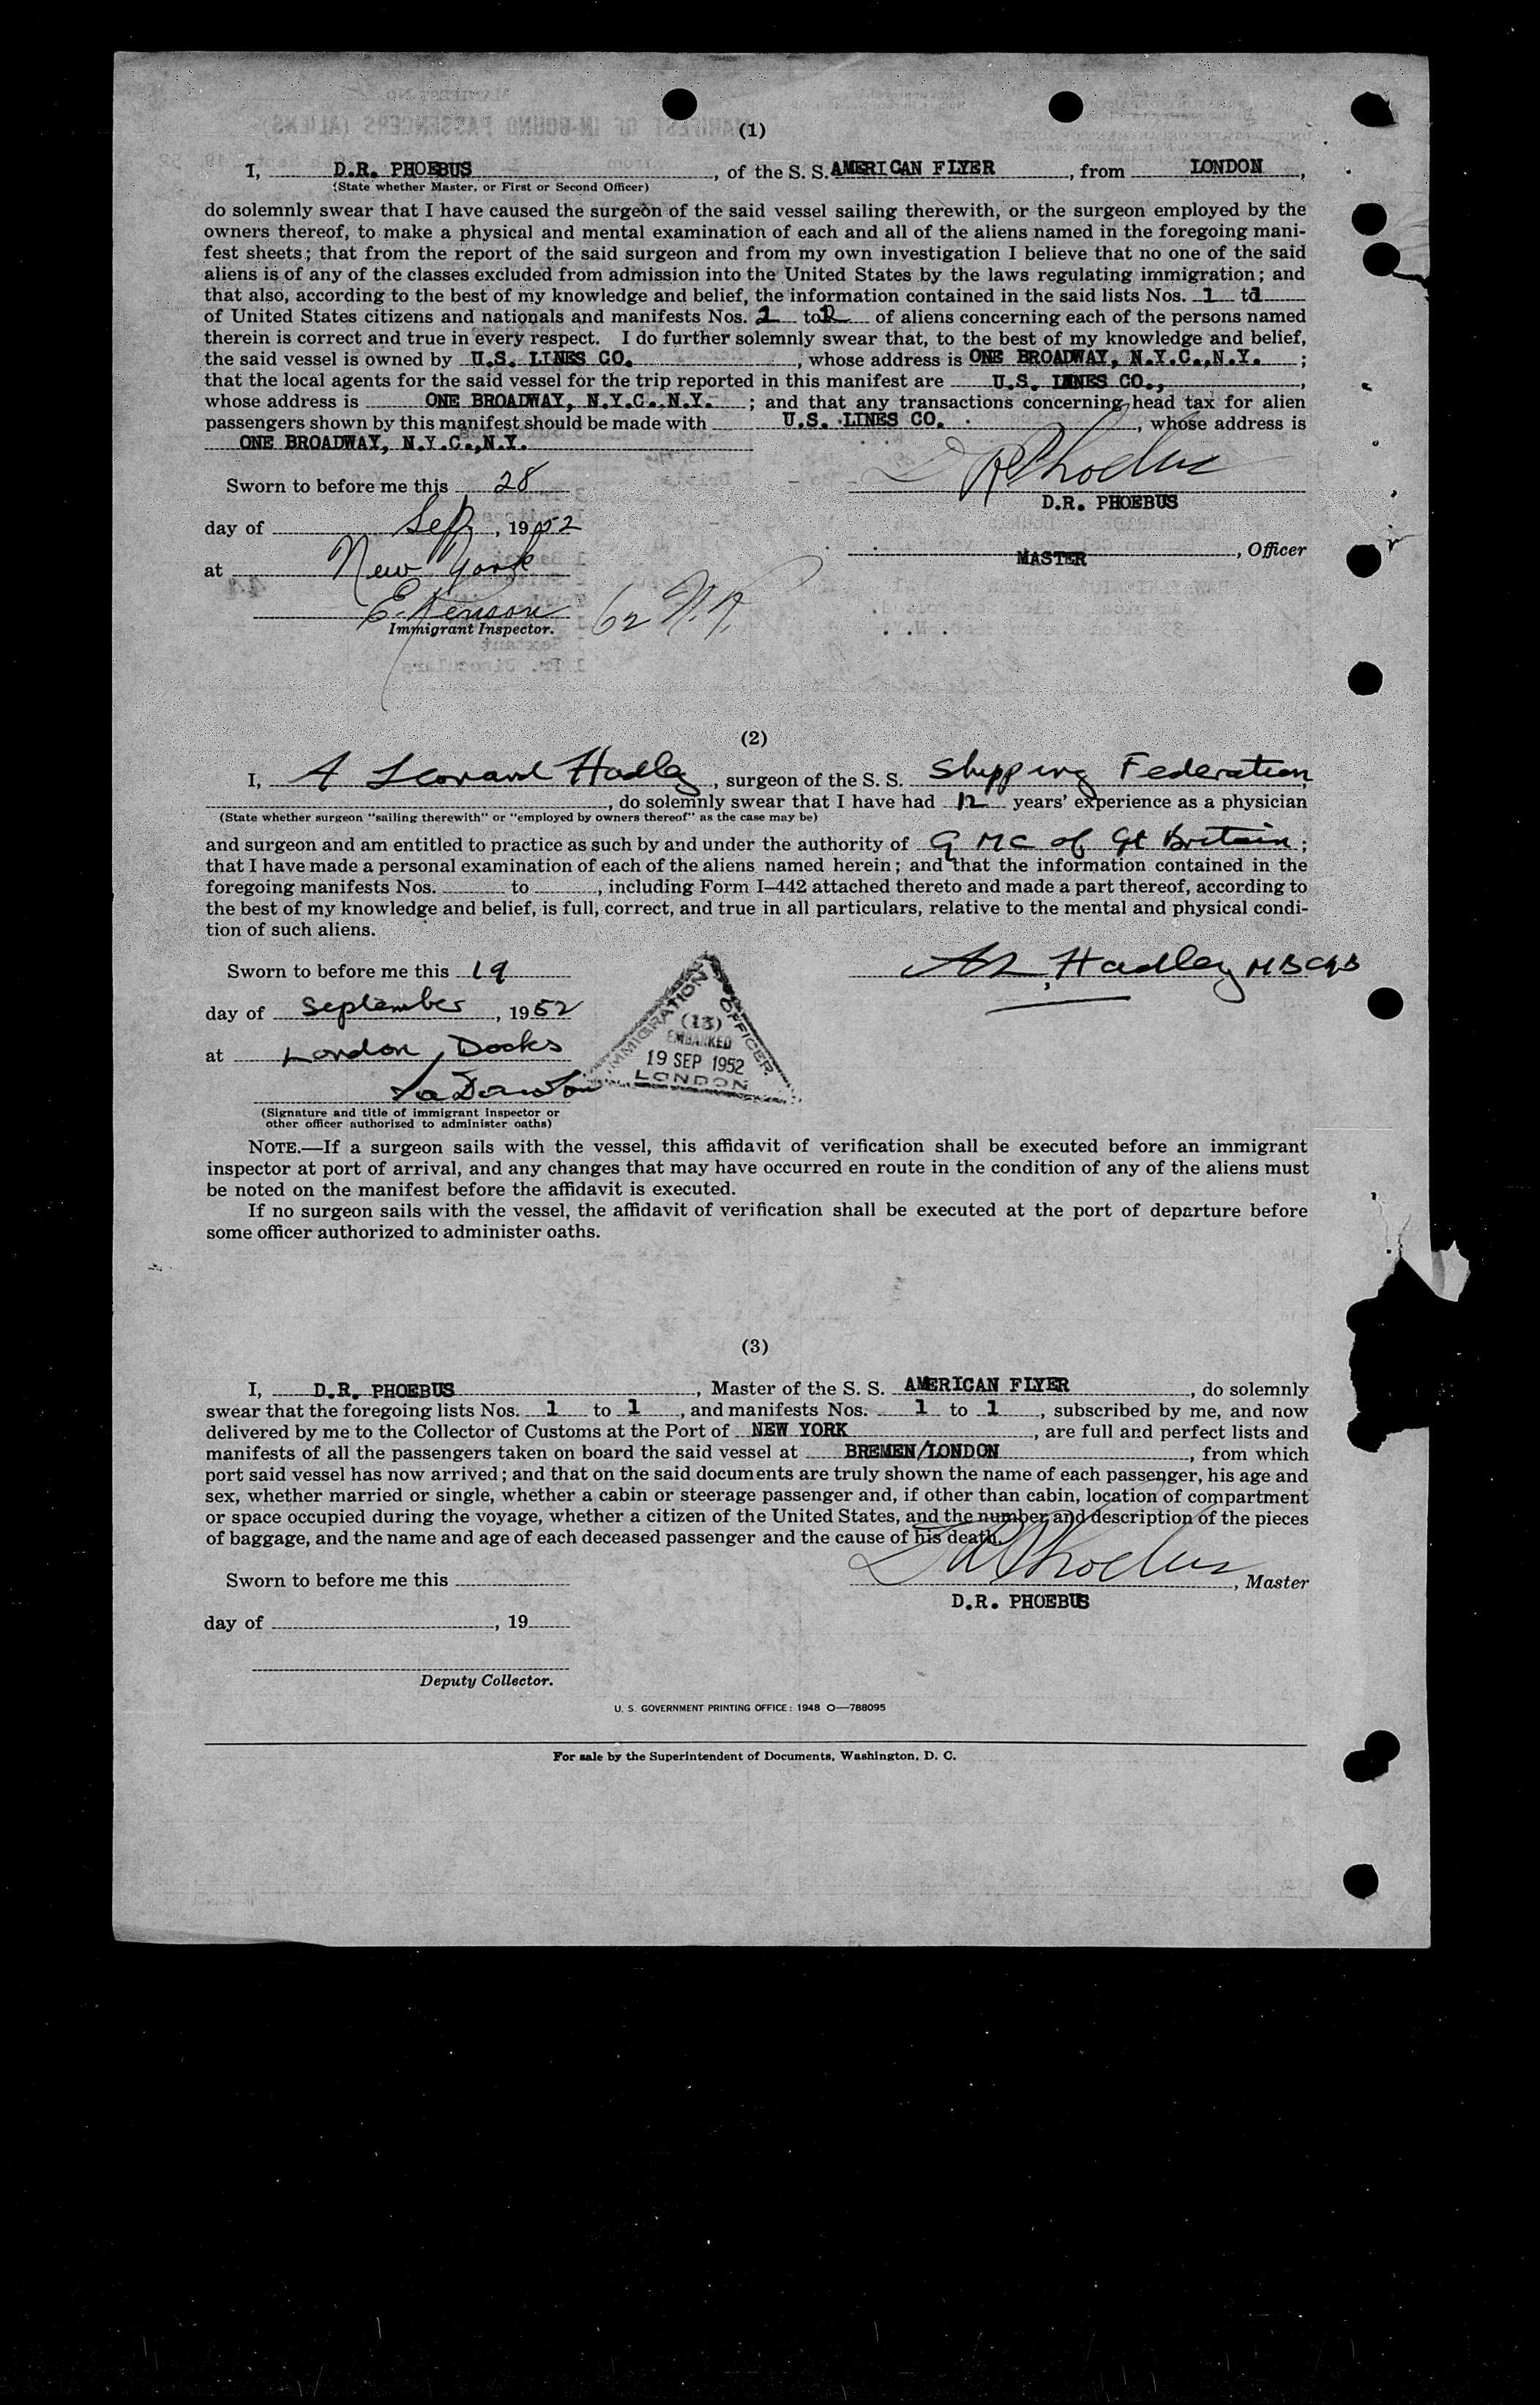 (1)
I, D.R. PHOEBUS, of the S. S. AMERICAN FLYER, from LONDON,
(State whether Master, or First or Second Officer)
do solemnly swear that I have caused the surgeon of the said vessel sailing therewith, or the surgeon employed by the
owners thereof, to make a physical and mental examination of each and all of the aliens named in the foregoing mani-
fest sheets; that from the report of the said surgeon and from my own investigation I believe that no one of the said
aliens is of any of the classes excluded from admission into the United States by the laws regulating immigration; and
that also, according to the best of my knowledge and belief, the information contained in the said lists Nos. 1 to 1
of United States citizens and nationals and manifests Nos. to of aliens concerning each of the persons named
therein is correct and true in every respect. I do further solemnly swear that, to the best of my knowledge and belief,
the said vessel is owned by U.S. LINES CO., whose address is ONE BROADWAY, N.Y.C.,N.Y. ;
that the local agents for the said vessel for the trip reported in this manifest are U.S. LINES CO.,
whose address is ONE BROADWAY, N.Y.C.,N.Y. ; and that any transactions concerning head tax for alien
passengers shown by this manifest should be made with U.S. LINES CO. , whose address is
ONE BROADWAY, N.Y.C.,N.Y.
D R Phoebus
Sworn to before me this 28
D.R. PHOEBUS
day of Sep, 1952
MASTER, Officer
at New York
E. Kenson 62 N.R.
Immigrant Inspector.
(2)
I, A Leonard Hadley, surgeon of the S. S. Shipping Federation,
, do solemnly swear that I have had 12 years' experience as a physician
(State whether surgeon "sailing therewith" or "employed by owners thereof" as the case may be)
and surgeon and am entitled to practice as such by and under the authority of G MC of Gt Britain ;
that I have made a personal examination of each of the aliens named herein; and that the information contained in the
foregoing manifests Nos. to , including Form I–442 attached thereto and made a part thereof, according to
the best of my knowledge and belief, is full, correct, and true in all particulars, relative to the mental and physical condi-
tion of such aliens.
Sworn to before me this 19
AL Hadley
day of September, 1952
at London Docks
IMMIGRATION OFFICER
(13)
EMBARKED
19 SEP 1952
LONDON
(Signature and title of immigrant inspector or
other officer authorized to administer oaths)
NOTE.—If a surgeon sails with the vessel, this affidavit of verification shall be executed before an immigrant
inspector at port of arrival, and any changes that may have occurred en route in the condition of any of the aliens must
be noted on the manifest before the affidavit is executed.
If no surgeon sails with the vessel, the affidavit of verification shall be executed at the port of departure before
some officer authorized to administer oaths.
(3)
I, D.R. PHOEBUS, Master of the S. S. AMERICAN FLYER, do solemnly
swear that the foregoing lists Nos. 1 to 1, and manifests Nos. 1 to 1, subscribed by me, and now
delivered by me to the Collector of Customs at the Port of NEW YORK, are full and perfect lists and
manifests of all the passengers taken on board the said vessel at BREMEN/LONDON, from which
port said vessel has now arrived; and that on the said documents are truly shown the name of each passenger, his age and
sex, whether married or single, whether a cabin or steerage passenger and, if other than cabin, location of compartment
or space occupied during the voyage, whether a citizen of the United States, and the number and description of the pieces
of baggage, and the name and age of each deceased passenger and the cause of his death.
D R Phoebus
Sworn to before me this , Master
D.R. PHOEBUS
day of , 19
Deputy Collector.
U. S. GOVERNMENT PRINTING OFFICE: 1948 O—788095
For sale by the Superintendent of Documents, Washington, D. C.